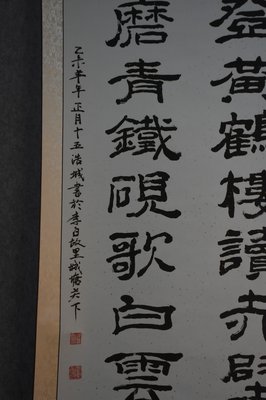 登黃鶴樓讀赤
磨青鐵硯歌白雲
乙未羊年正月十五浩城書於李白故里城牆